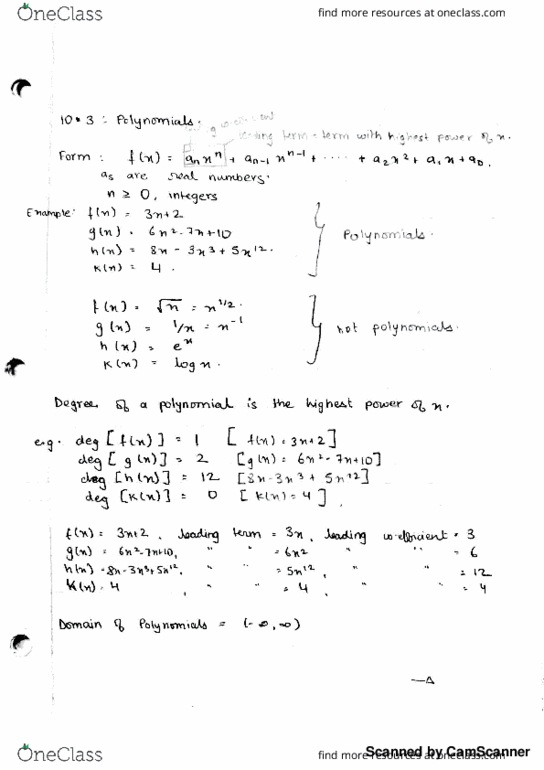 OneClass
find more resources at oneclass.com
10.3: Polynomials.
leading term = term with highest power of x.
Form: f(x) = aₙxⁿ + aₙ₋₁ xⁿ⁻¹ + ..... + a₂x² + a₁x + a₀.
aₛ are real numbers.
n ≥ 0, integers
Example: f(x) = 3x+2
g(x) = 6x²-7x+10
h(x) = 8x - 3x³ + 5x¹².
k(x) = 4.
Polynomials.
f(x) = √x = x^1/2
g(x) = 1/x = x⁻¹
h(x) = eˣ
k(x) = log x.
not polynomials.
Degree of a polynomial is the highest power of x.
e.g. deg [f(x)] = 1 [f(x) = 3x+2]
deg [g(x)] = 2 [g(x) = 6x²-7x+10]
deg [h(x)] = 12 [8x-3x³+5x¹²]
deg [k(x)] = 0 [k(x) = 4].
f(x) = 3x+2, leading term = 3x, leading co-efficient = 3
g(x) = 6x²-7x+10, " " = 6x² " " = 6
h(x) = 8x-3x³+5x¹², " " = 5x¹², " " = 12
k(x) = 4, " " = 4, " " = 4
Domain of Polynomials = (-∞, ∞)
OneClass
find more resources at oneclass.com
Scanned by CamScanner